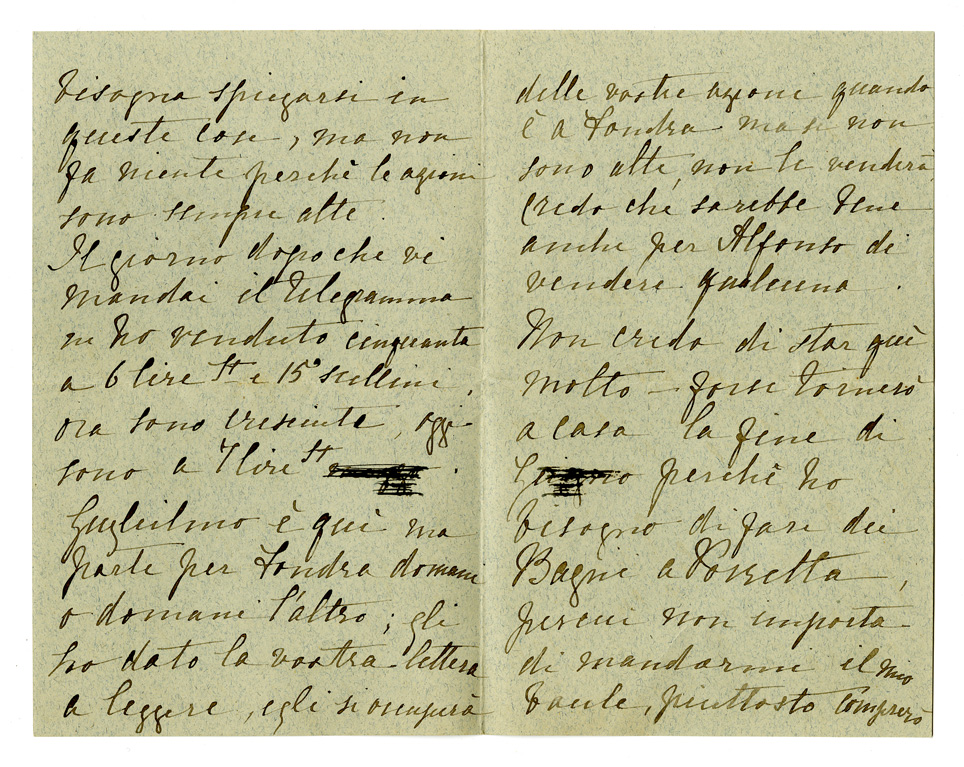 bisogna spiegarsi in
queste cose, ma non
fa niente perchè le azioni
sono sempre alte.
Il giorno dopo che vi
mandai il telegramma
ne ho venduto cinquanta
a 6 lire St e 15 scellini,
ora sono cresciute, oggi
sono a 7 lire St
Guglielmo è quì ma
parte per Londra domani
o domani l'altro; gli
ho dato la vostra lettera
a leggere, egli si occuperà
delle vostre azione quando
è a Londra ma se non
sono alte, non le venderà,
credo che sarebbe bene
anche per Alfonso di
vendere qualcuna.
Non credo di star quì
molto – forse tornerò
a casa la fine di
Giugno perchè ho
bisogno di fare dei
Bagni a Porretta,
percui non importa
di mandarmi il mio
baule, piuttosto comprerò